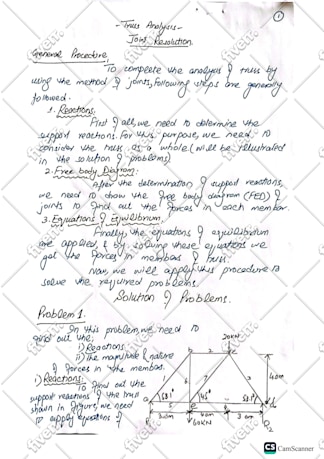 1
- Truss Analysis -
Joint Resolution
General Procedure:
To complete the analysis of truss by
using the method of joints, following steps are generally
followed.
1. Reactions.
First of all, we need to determine the
support reactions. For this purpose, we need to
consider the truss as a whole (will be illustrated
in the solution of problems)
2. Free body Diagram:
After the determination of support reactions,
we need to draw the free body diagram (FBD) of
joints to find out the forces in each member.
3. Equations of Equilibrium,
Finally, the equations of equilibrium
are applied, & by solving these equations we
get the forces in members of truss.
Now, we will apply this procedure to
solve the required problems.
Solution of Problems.
Problem 1.
In this problem, we need to
find out the;
i) Reactions
ii) The magnitude & nature
of forces in the members.
i) Reactions:
To find out the
support reactions of the truss
shown in figure, we need
to apply equations of
20KN
b
c
4.0m
1
2
6
7
3
a
45°
d
5
e
3.0m
40KN
R2
fiverr.
CS CamScanner